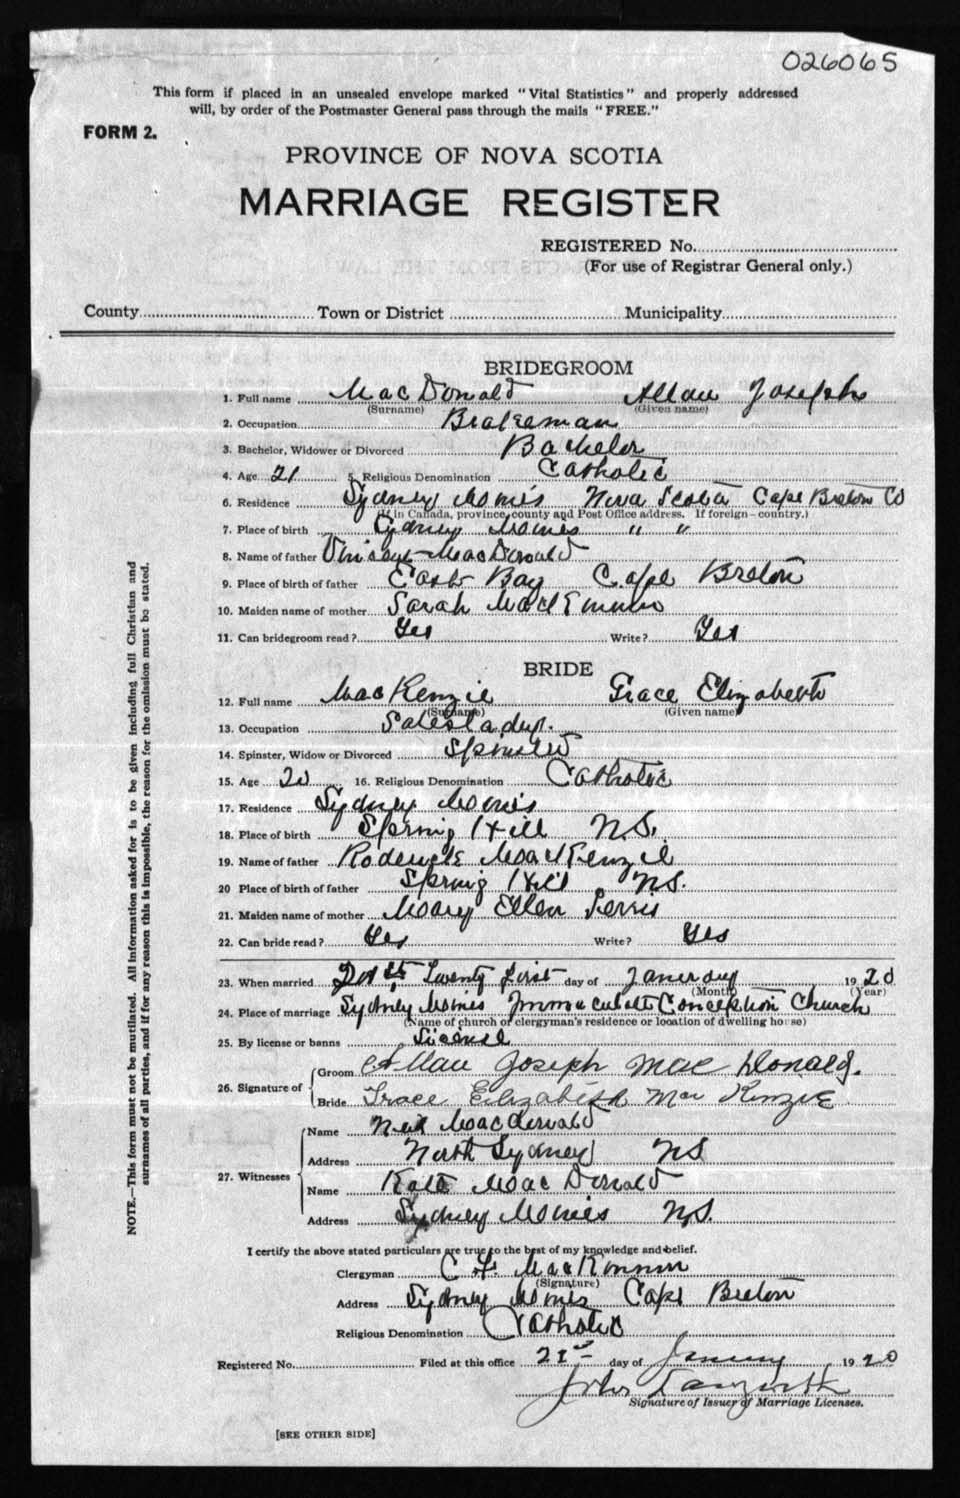 026065
This form if placed in an unsealed envelope marked "Vital Statistics" and properly addressed
will, by order of the Postmaster General pass through the mails "FREE."
FORM 2.
PROVINCE OF NOVA SCOTIA
MARRIAGE REGISTER
REGISTERED No.
(For use of Registrar General only.)
County Town or District Municipality
BRIDEGROOM
1. Full name MacDonald Allan Joseph
(Surname) (Given name)
2. Occupation Brakeman
3. Bachelor, Widower or Divorced Bachelor
4. Age 21 5. Religious Denomination Catholic
6. Residence Sydney Mines Nova Scotia Cape Breton Co
(If in Canada, province, county and Post Office address. If foreign—country.)
7. Place of birth Sydney Mines " "
8. Name of father MacDonald
9. Place of birth of father East Bay Cape Breton
10. Maiden name of mother Sarah
11. Can bridegroom read? Yes Write? Yes
BRIDE
12. Full name MacKenzie Grace Elizabeth
(Surname) (Given name)
13. Occupation Saleslady.
14. Spinster, Widow or Divorced Spinster
15. Age 20 16. Religious Denomination Catholic
17. Residence Sydney Mines
18. Place of birth Spring Hill N.S.
19. Name of father Roderick MacKenzie
20 Place of birth of father Spring Hill NS.
21. Maiden name of mother Mary Ellen
22. Can bride read? Yes Write? Yes
23. When married 21st Twenty first day of January 1920
(Month) (Year)
24. Place of marriage Sydney Mines Immaculate Conception Church
(Name of church or clergyman's residence or location of dwelling house)
25. By license or banns License
26. Signature of Groom Allan Joseph Mac Donald.
Bride Grace Elizabeth Mac Kenzie
27. Witnesses Name Neil MacDonald
Address North Sydney NS
Name Kate MacDonald
Address Sydney Mines N.S.
I certify the above stated particulars are true to the best of my knowledge and belief.
Clergyman C F. MacKinnon
(Signature)
Address Sydney Mines Cape Breton
Religious Denomination Catholic
Registered No. Filed at this office 21st day of January 1920
John
Signature of Issuer of Marriage Licenses.
[SEE OTHER SIDE]
NOTE.—This form must not be mutilated. All information asked for is to be given including full Christian and
surnames of all parties, and if for any reason this is impossible, the reason for the omission must be stated.